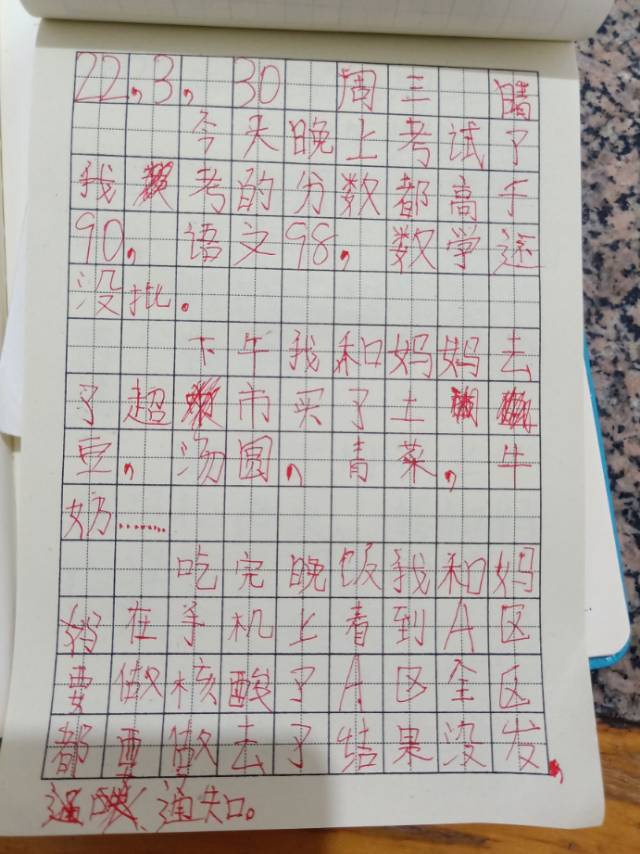 22.3.30 周三 晴
今天晚上考试了
我考的分数都高于
90，语文98，数学还
没批。
下午我和妈妈去
了超市买了土
豆，汤圆、青菜，牛
奶……
吃完晚饭我和妈
妈在手机上看到A区
要做核酸了A区全区
都要做去了结果没发
通知。